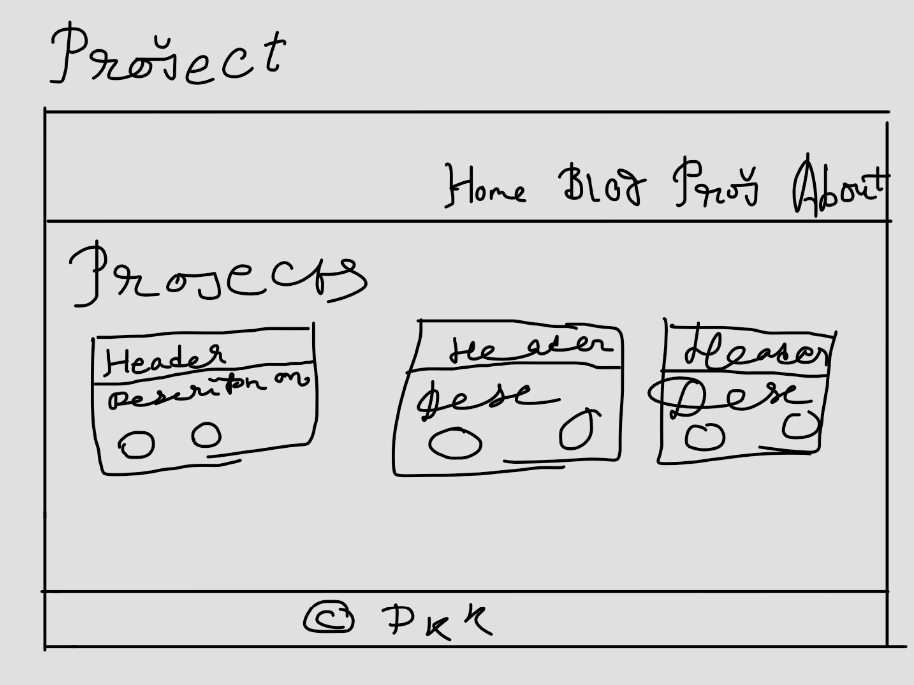 Project
Home Blog Proj About
Projects
Header
Description
Header
Desc
Header
Desc
© PKK